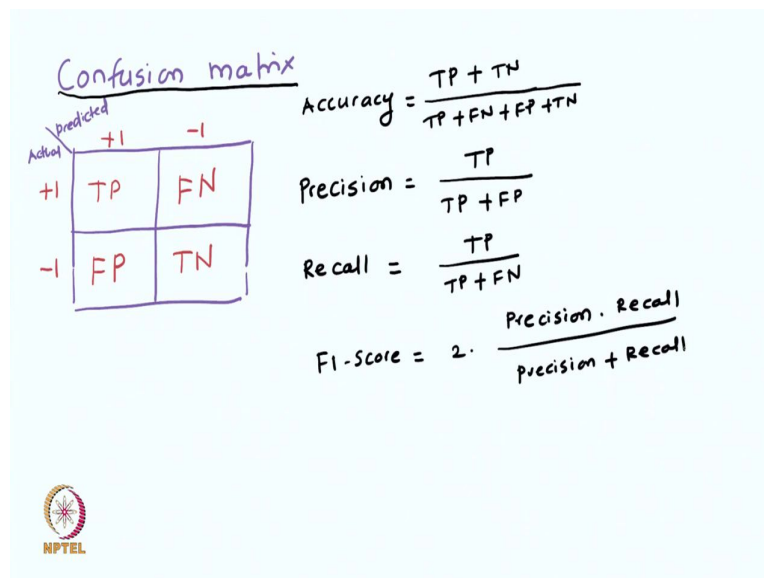 Confusion matrix
predicted
Actual
+1 -1
+1 TP FN
-1 FP TN
Accuracy = TP + TN / TP + FN + FP + TN
Precision = TP / TP + FP
Recall = TP / TP + FN
F1-Score = 2. Precision . Recall / Precision + Recall
NPTEL